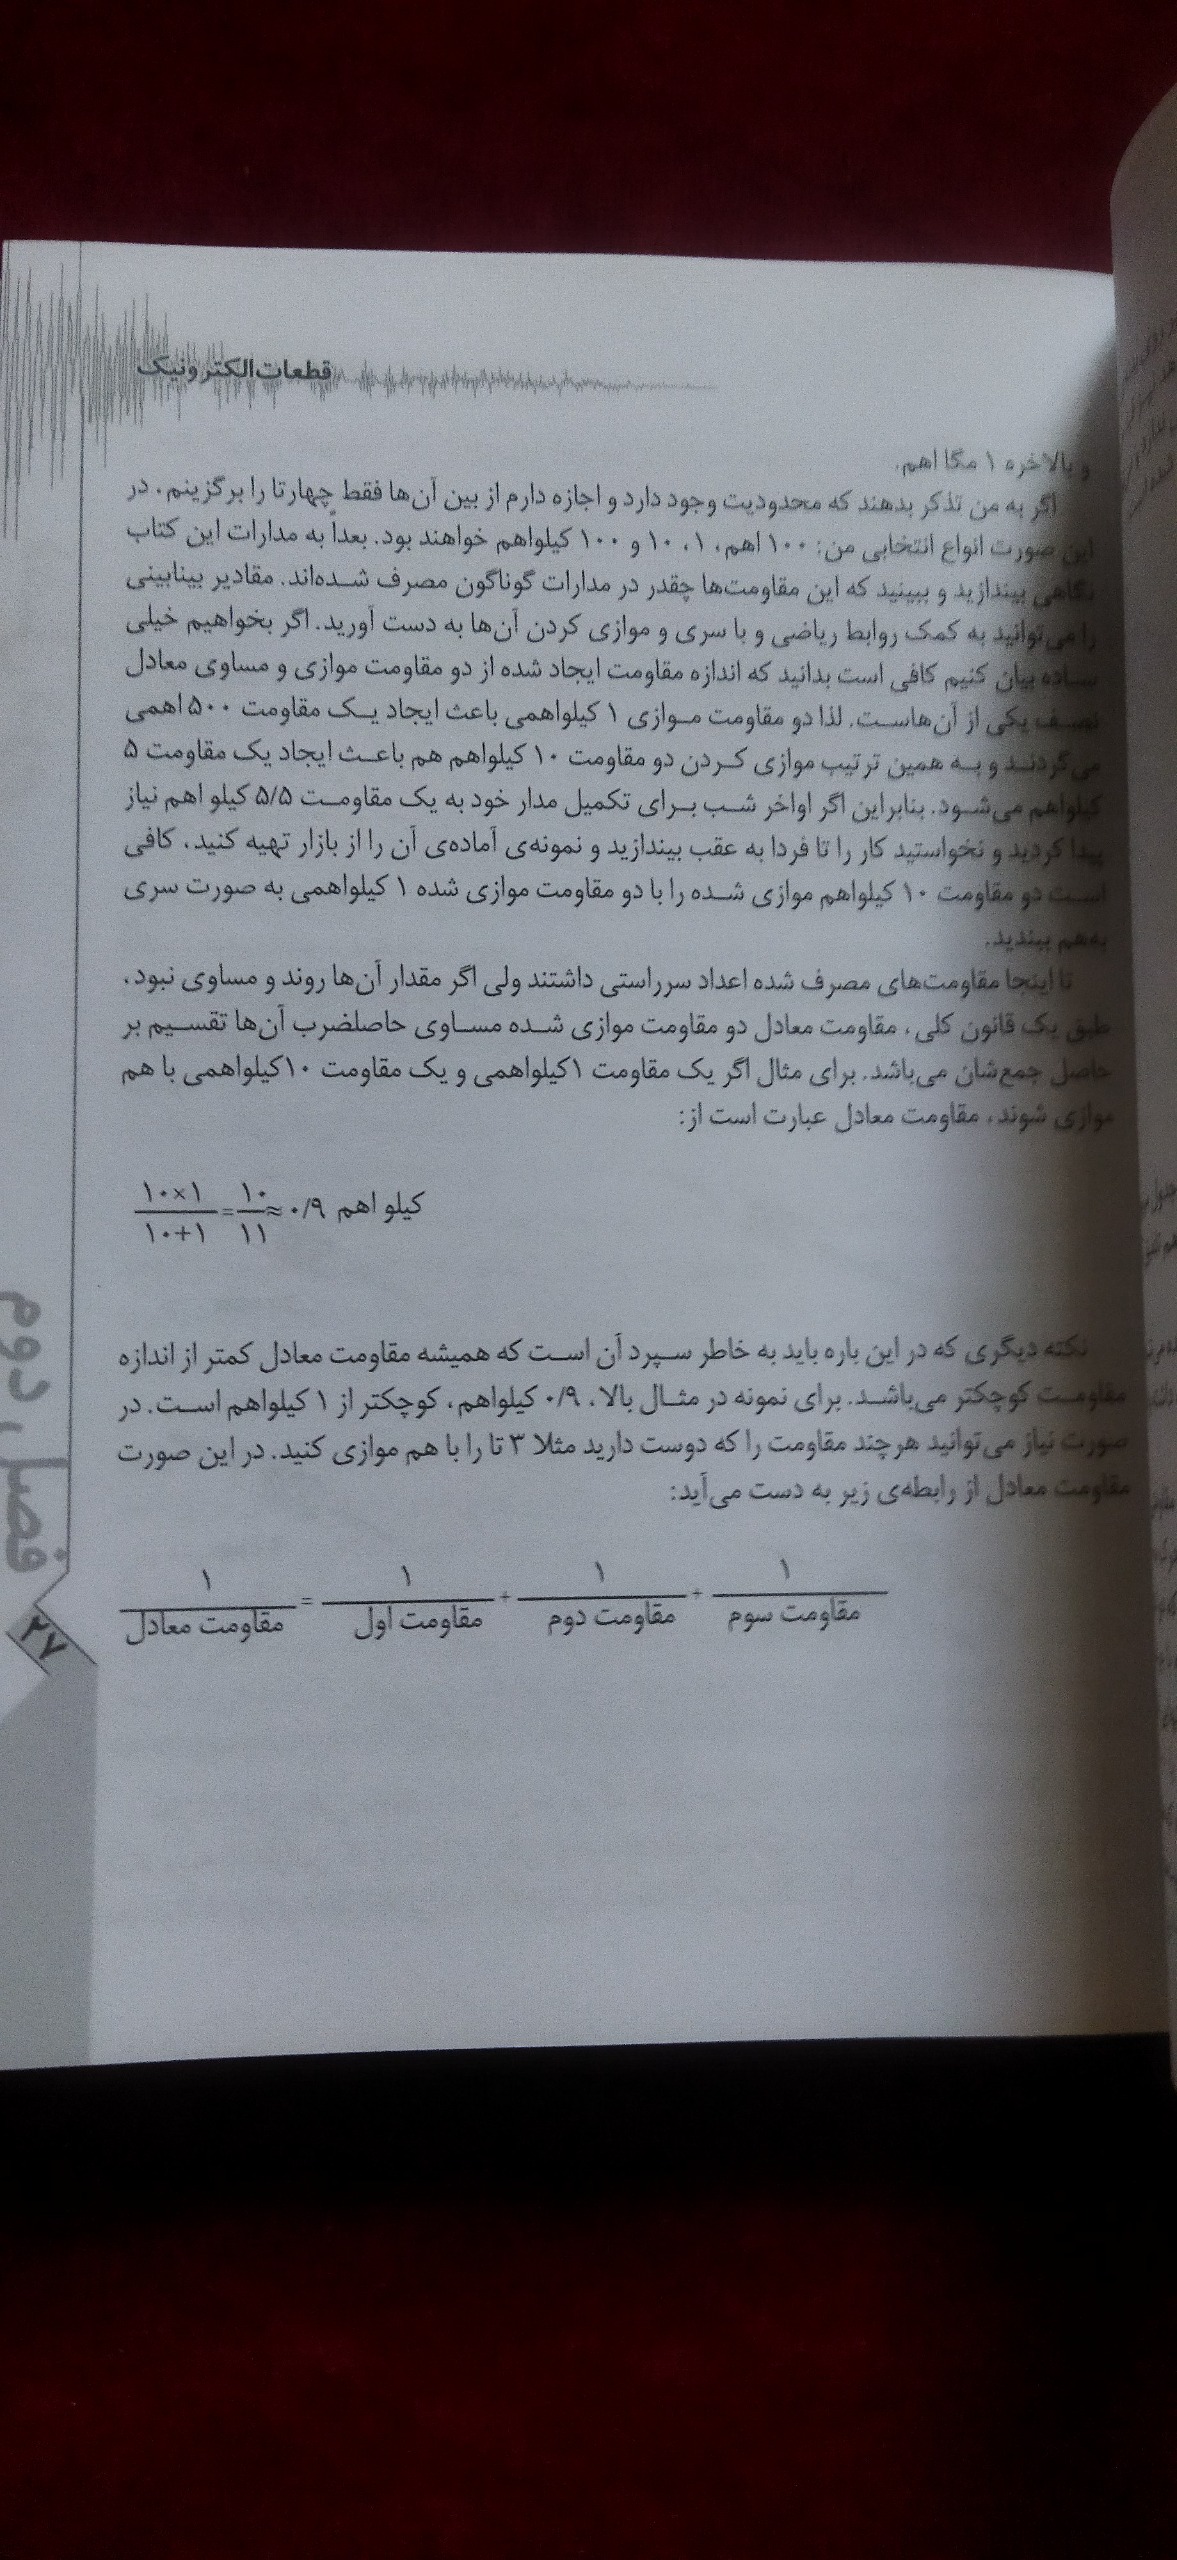 قطعات الکترونیک
و بالاخره ۱ مگا اهم.
اگر به من تذکر بدهند که محدودیت وجود دارد و اجازه دارم از بین آن‌ها فقط چهارتا را برگزینم، در
این صورت انواع انتخابی من: ۱۰۰ اهم، ۱، ۱۰ و ۱۰۰ کیلواهم خواهند بود. بعداً به مدارات این کتاب
نگاهی بیندازید و ببینید که این مقاومت‌ها چقدر در مدارات گوناگون مصرف شده‌اند. مقادیر بینابینی
را می‌توانید به کمک روابط ریاضی و با سری و موازی کردن آن‌ها به دست آورید. اگر بخواهیم خیلی
ساده بیان کنیم کافی است بدانید که اندازه مقاومت ایجاد شده از دو مقاومت موازی و مساوی معادل
نصف یکی از آن‌هاست. لذا دو مقاومت موازی ۱ کیلواهمی باعث ایجاد یک مقاومت ۵۰۰ اهمی
می‌گردند و به همین ترتیب موازی کردن دو مقاومت ۱۰ کیلواهم هم باعث ایجاد یک مقاومت ۵
کیلواهم می‌شود. بنابراین اگر اواخر شب برای تکمیل مدار خود به یک مقاومت ۵/۵ کیلو اهم نیاز
پیدا کردید و نخواستید کار را تا فردا به عقب بیندازید و نمونه‌ی آماده‌ی آن را از بازار تهیه کنید، کافی
است دو مقاومت ۱۰ کیلواهم موازی شده را با دو مقاومت موازی شده ۱ کیلواهمی به صورت سری
به‌هم ببندید.
تا اینجا مقاومت‌های مصرف شده اعداد سرراستی داشتند ولی اگر مقدار آن‌ها روند و مساوی نبود،
طبق یک قانون کلی، مقاومت معادل دو مقاومت موازی شده مساوی حاصلضرب آن‌ها تقسیم بر
حاصل جمع‌شان می‌باشد. برای مثال اگر یک مقاومت ۱کیلواهمی و یک مقاومت ۱۰کیلواهمی با هم
موازی شوند، مقاومت معادل عبارت است از:
۱۰×۱ ۱۰
= ≈ ۰/۹ کیلو اهم
۱۰+۱ ۱۱
نکته دیگری که در این باره باید به خاطر سپرد آن است که همیشه مقاومت معادل کمتر از اندازه
مقاومت کوچکتر می‌باشد. برای نمونه در مثال بالا، ۰/۹ کیلواهم، کوچکتر از ۱ کیلواهم است. در
صورت نیاز می‌توانید هرچند مقاومت را که دوست دارید مثلا ۳ تا را با هم موازی کنید. در این صورت
مقاومت معادل از رابطه‌ی زیر به دست می‌آید:
۱ ۱ ۱ ۱
= + +
مقاومت معادل مقاومت اول مقاومت دوم مقاومت سوم
فصل دوم
۲۷